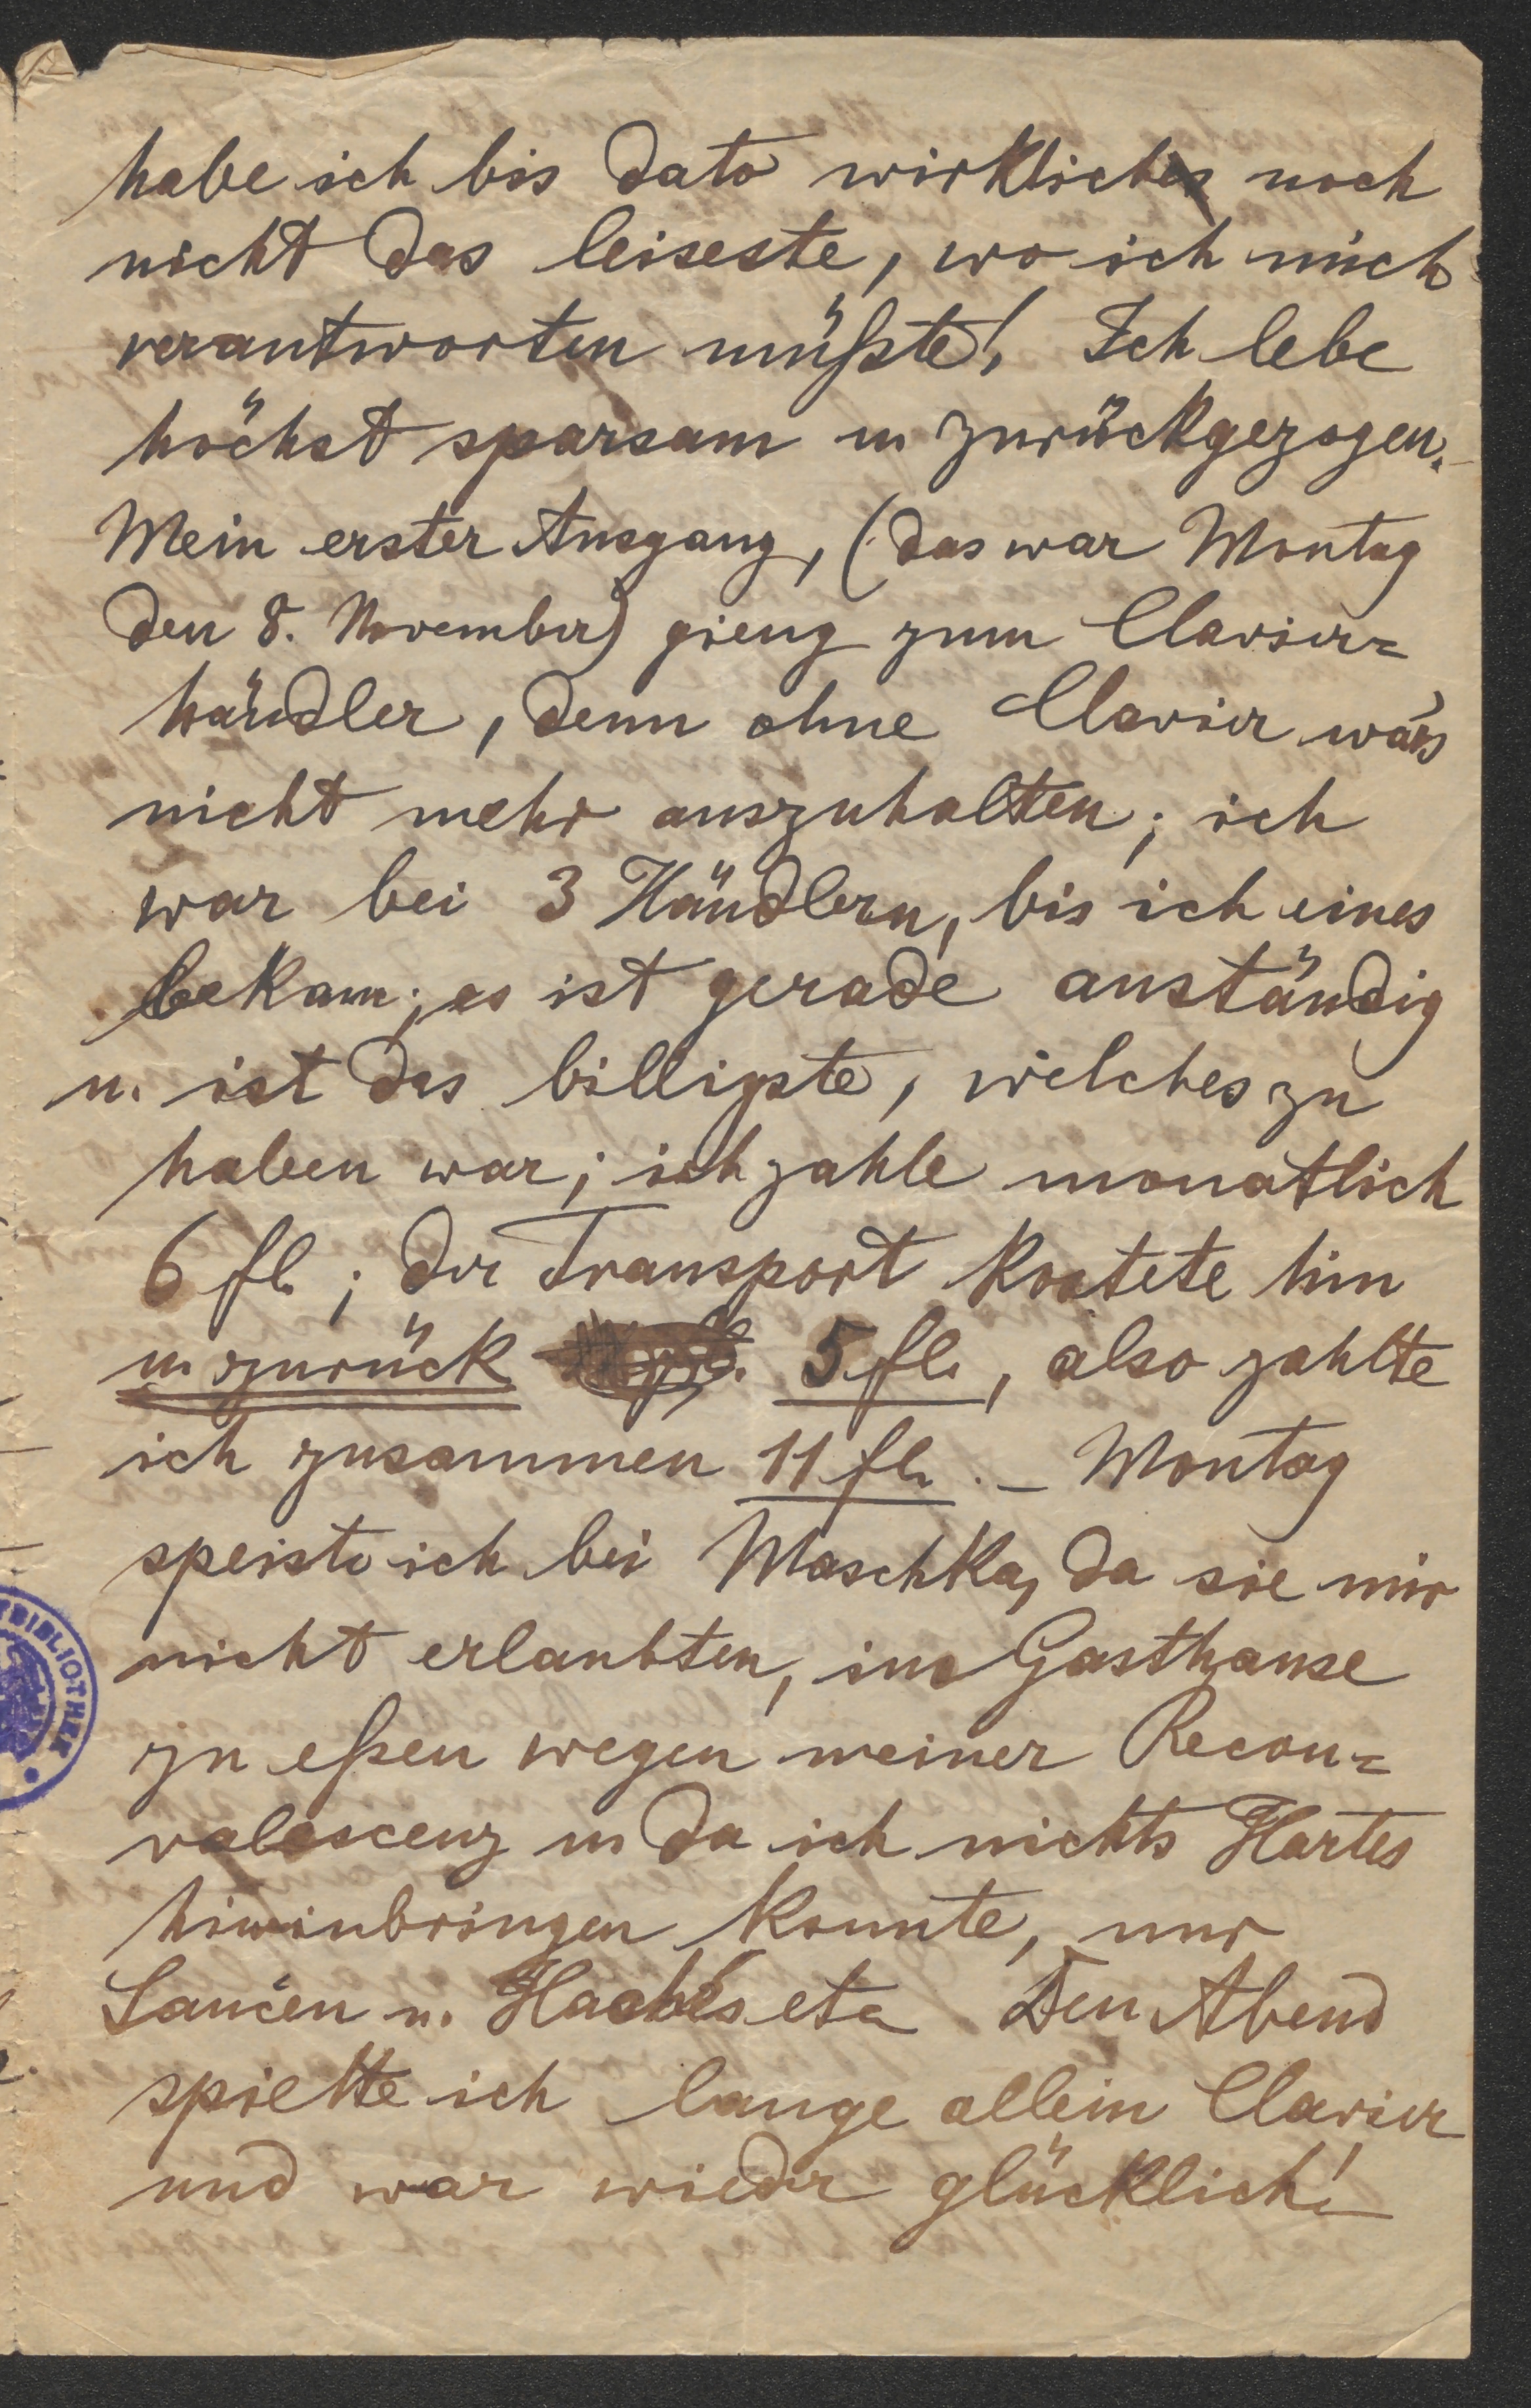 habe ich bis dato wirklich noch
nicht das leiseste, wo ich mich
verantworten müßte! Ich lebe
höchst sparsam u. zurückgezogen.
Mein erster Ausgang, (das war Montag
den 8. November) gieng zum Clavier=
händler, denn ohne Clavier wär's
nicht mehr auszuhalten; ich
war bei 3 Händlern, bis ich eines
bekam; es ist gerade anständig
u. ist das billigste, welches zu
haben war; ich zahle monatlich
6 fl.; der Transport kostete hin
u. zurück 5 fl., also zahlte
ich zusammen 11 fl. – Montag
speiste ich bei Maschka, da sie mir
nicht erlaubten, im Gasthause
zu eßen wegen meiner Recon=
valescenz u. da ich nichts Hartes
hineinbringen konnte, nur
Saucen u. Hachés etc. Den Abend
spielte ich lange allein Clavier
und war wieder glücklich!
BIBLIOTHEK